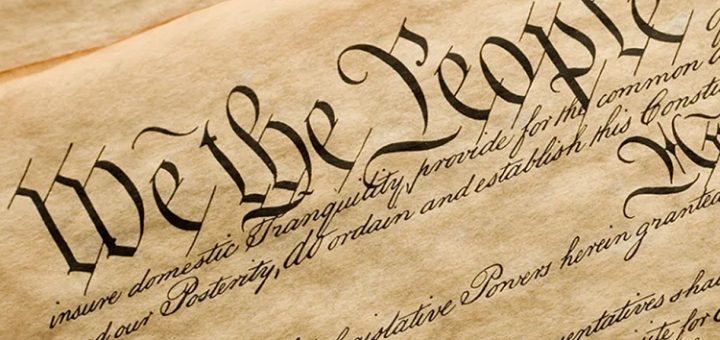 We the People
insure domestic Tranquility, provide for the common
our Posterity, do ordain and establish this Consti
gislative Powers herein granted
sentatives shal
for